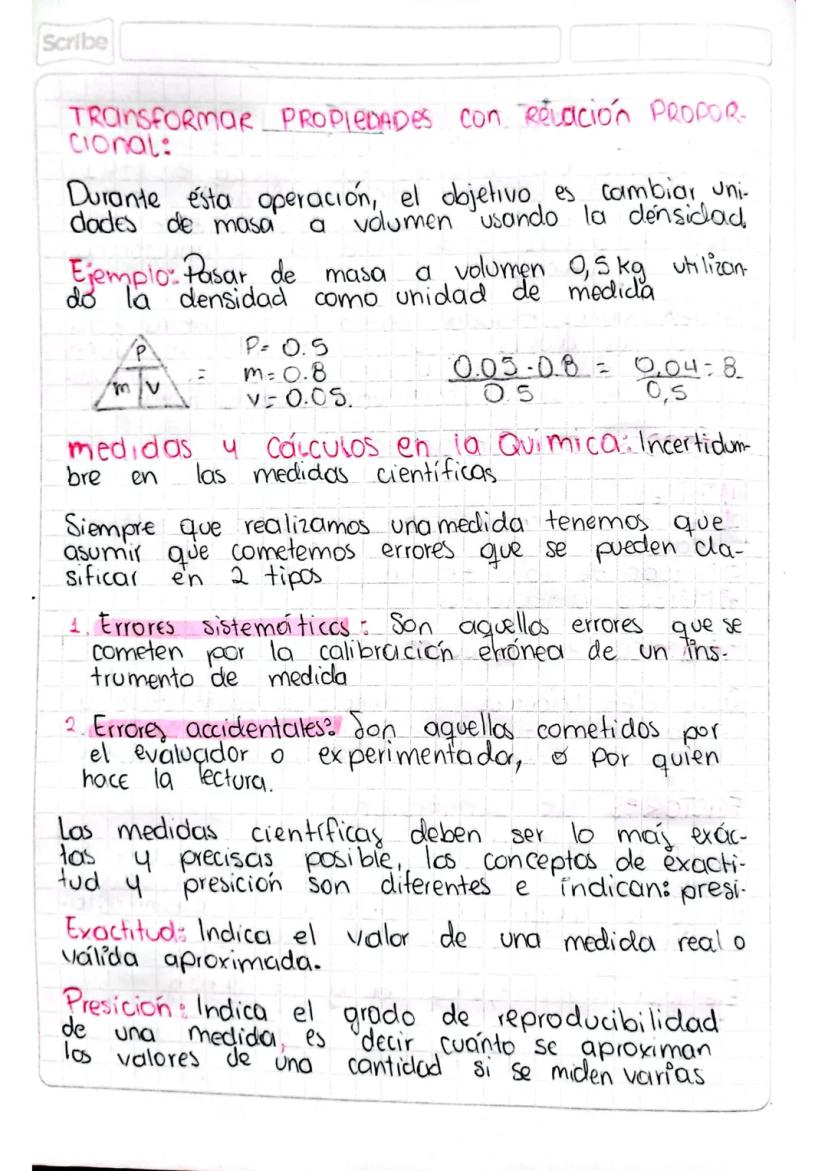 Scribe
TRANSFORMAR PROPIEDADES CON RELACIÓN PROPOR-
CIONAL:
Durante ésta operación, el objetivo es cambiar uni-
dades de masa a volumen usando la densidad.
Ejemplo: Pasar de masa a volumen 0,5 kg utilizan-
do la densidad como unidad de medida
P m V = P= 0.5
m= 0.8
V= 0.05.
0.05 · 0.8 = 0,04 = 8
0.5 0,5
medidas y Cálculos en la Química: Incertidum-
bre en las medidas científicas
Siempre que realizamos una medida tenemos que
asumir que cometemos errores que se pueden cla-
sificar en 2 tipos
1. Errores sistemáticos: Son aquellos errores que se
cometen por la calibración errónea de un ins-
trumento de medida
2. Errores accidentales: Son aquellos cometidos por
el evaluador o experimentador, o por quien
hace la lectura.
Las medidas científicas deben ser lo más exác-
tas y precisas posible, los conceptos de exacti-
tud y presición son diferentes e indican: presi-
Exactitud: Indica el valor de una medida real o
válida aproximada.
Presición: Indica el grado de reproducibilidad
de una medida, es decir cuánto se aproximan
los valores de una cantidad si se miden varias